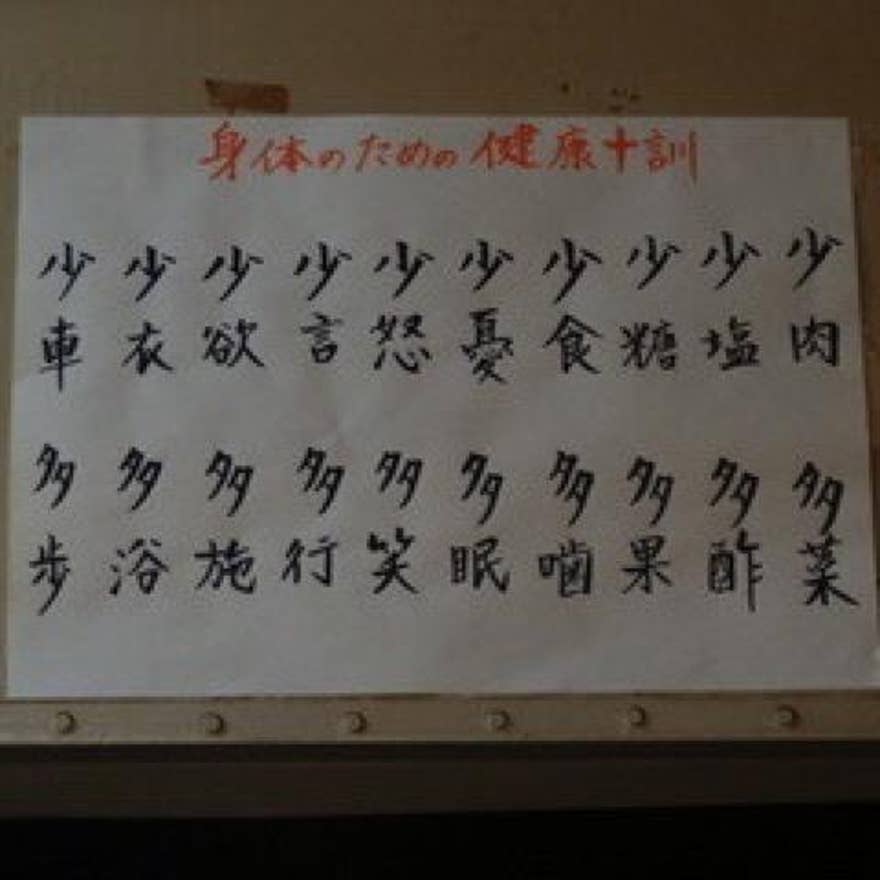 身体のための健康十訓
少肉多菜
少塩多酢
少糖多果
少食多噛
少憂多眠
少怒多笑
少言多行
少欲多施
少衣多浴
少車多歩